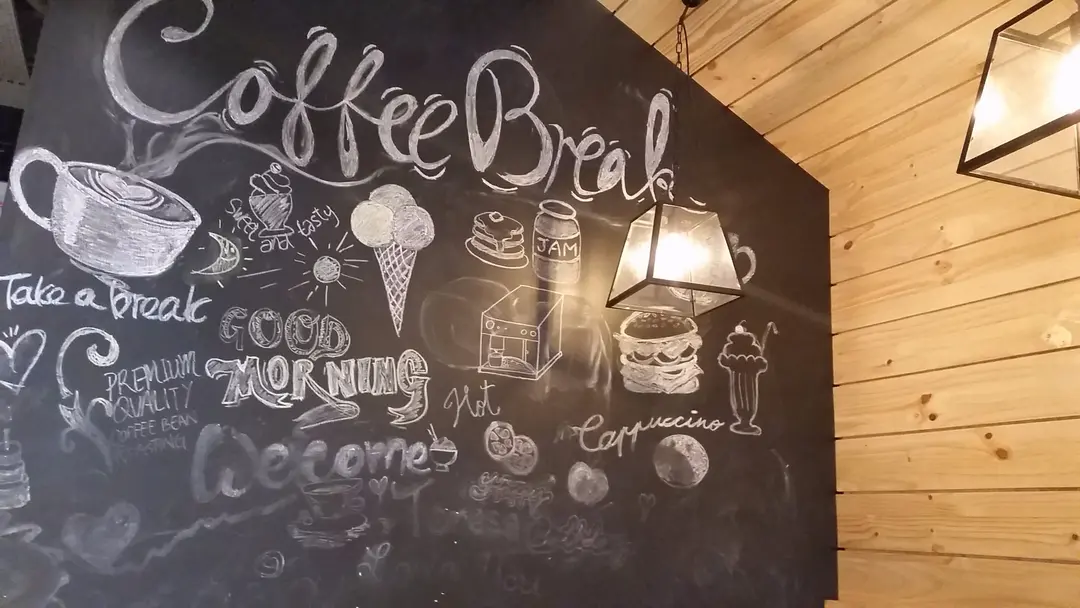 Coffee Break
Sweet
and tasty
JAM
Take a break
GOOD
MORNING
PREMIUM
QUALITY
COFFEE BEAN
ROASTING
Hot
Cappuccino
Welcome